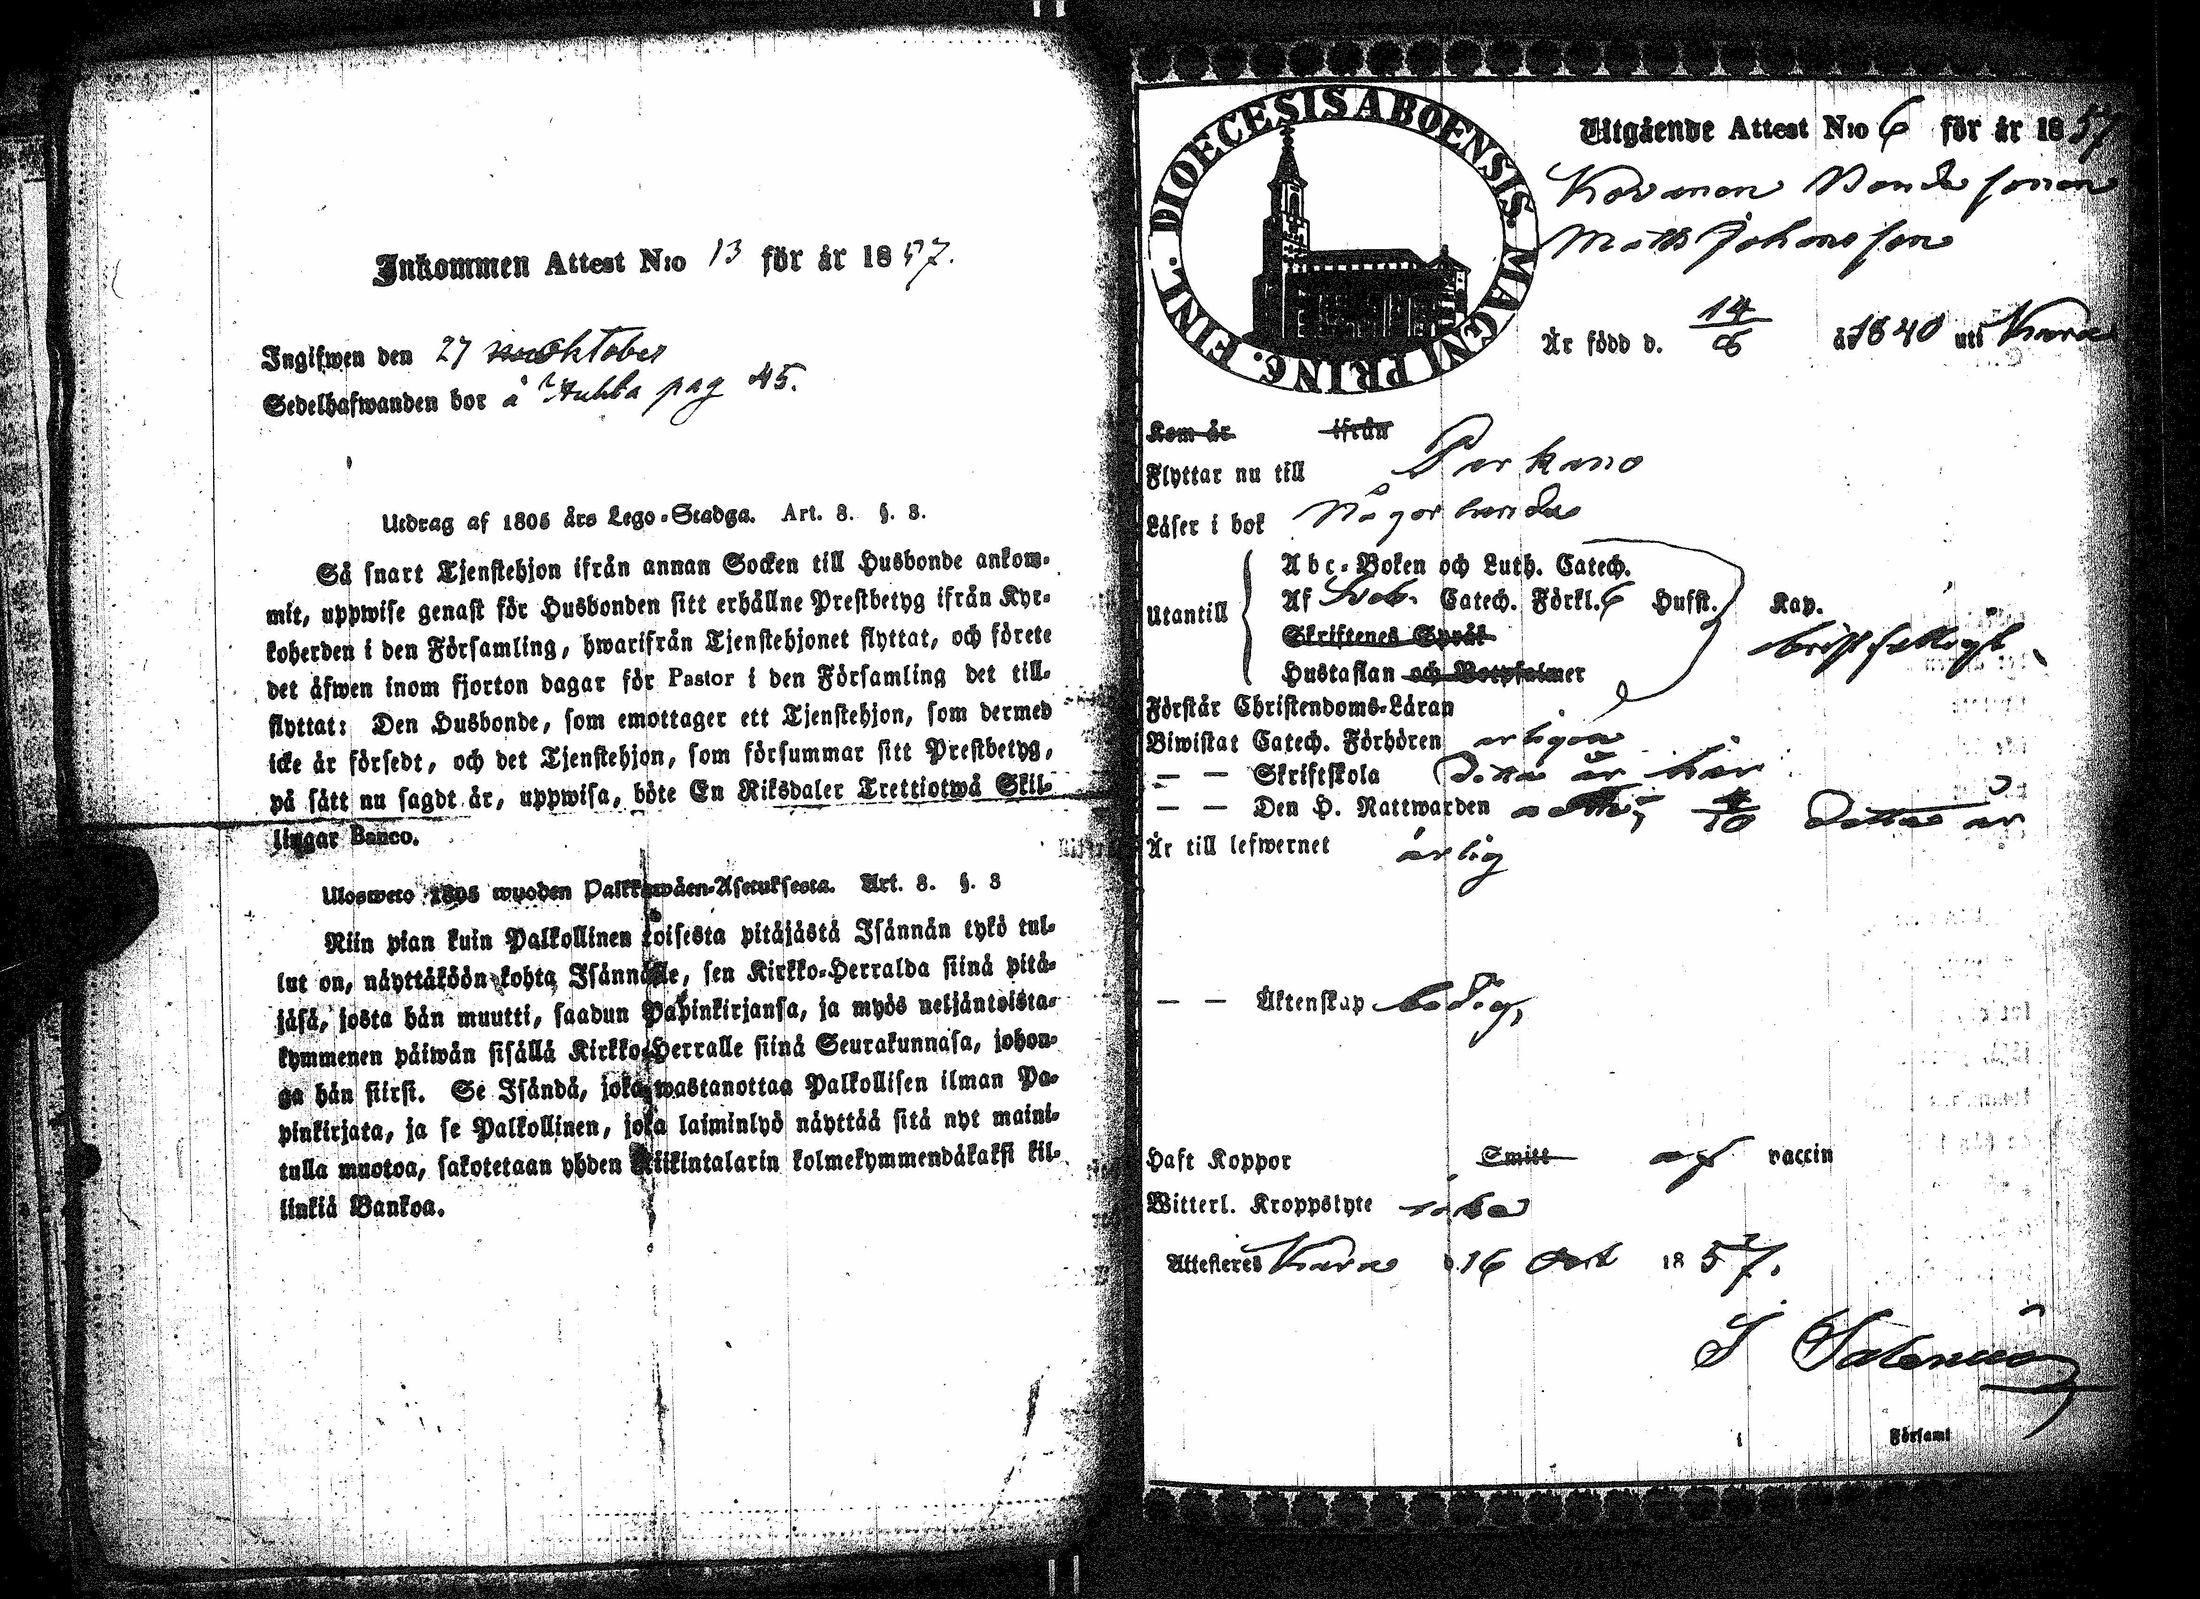 Inkommen Attest N:o 13 för år 1857.
Ingifwen den 27 oktober
Sedelhafwanden bor å Hubba pag 45.
Utdrag af 1805 års Lego-Stadga. Art. 8. §. 8.
Så snart Tjenstehjon ifrån annan Socken till Husbonde ankom-
mit, uppwise genast för Husbonden sitt erhållne Prestbetyg ifrån Kyr-
koherden i den Församling, hwarifrån Tjenstehjonet flyttat, och förete
det äfwen inom fjorton dagar för Pastor i den Församling det till-
flyttat: Den Husbonde, som emottager ett Tjenstehjon, som dermed
icke är försedt, och det Tjenstehjon, som försummar sitt Prestbetyg,
på sätt nu sagdt är, uppwisa, böte En Riksdaler Trettiotwå Skil-
lingar Banco.
Ulosweto 1805 wuoden Palkkawäen-Asetuksesta. Art. 8. §. 8
Niin pian kuin Palkollinen toisesta pitäjästä Isännän tykö tul-
lut on, näyttäköön kohta Isännälle, sen Kirkko-Herralda siinä pitä-
jäsä, josta hän muutti, saadun Papinkirjansa, ja myös neljäntoista-
kymmenen päiwän sisällä Kirkko-Herralle siinä Seurakunnasa, johon-
ga hän siirsi. Se Isändä, joka wastanottaa Palkollisen ilman Pa-
pinkirjata, ja se Palkollinen, joka laiminlyö näyttää sitä nyt maini-
tulla muotoa, sakotetaan yhden Riikintalarin kolmekymmendäkaksi kil-
linkiä Bankoa.
DIOECESIS ABOENSIS. MAGNI PRINC. FINL.
Utgående Attest N:o 6 för år 1857
Bondesonen
Matts Johansson
Är född d. 14/6 år 1840 uti
Kom år ifrån
Flyttar nu till Parkano
Läser i bok Någorlunda
Utantill
Abc-Boken och Luth. Catech.
Af Sveb. Catech. Förkl. 6 Hufst. Kap.
Skriftenes Språk
bristfälligt
Hustaflan och Botpsalmer
Förstår Christendoms-Läran
Biwistat Catech. Förhören årligen
— — Skriftskola Detta år här
— — Den H. Nattwarden 4/10 Detta år
Är till lefwernet ärlig
— — Äktenskap ledig,
Haft Koppor Smitt af vaccin
Witterl. Kroppslyte icke
Attesteres d. 16 Oct 1857.
Församl